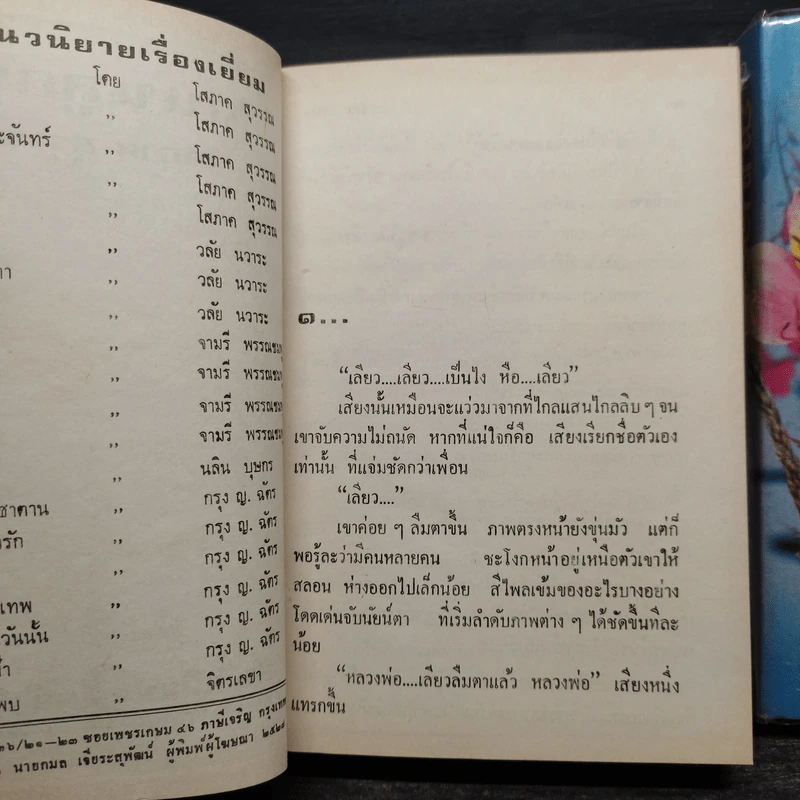 นวนิยายเรื่องเยี่ยม
โดย โสภาค สุวรรณ
,, โสภาค สุวรรณ
ะจันทร์ ,, โสภาค สุวรรณ
,, โสภาค สุวรรณ
,, โสภาค สุวรรณ
,, วลัย นวาระ
,, วลัย นวาระ
,, วลัย นวาระ
,, จามรี พรรณชมพู
,, จามรี พรรณชมพู
,, จามรี พรรณชมพู
,, จามรี พรรณชมพู
,, นลิน บุษกร
ซาตาน ,, กรุง ญ. ฉัตร
รัก ,, กรุง ญ. ฉัตร
,, กรุง ญ. ฉัตร
เทพ ,, กรุง ญ. ฉัตร
วันนั้น ,, กรุง ญ. ฉัตร
,, กรุง ญ. ฉัตร
พบ ,, จิตรเลขา
๓๖/๒๑—๒๓ ซอยเพชรเกษม ๔๖ ภาษีเจริญ กรุงเทพ
นายกมล เจียระสุพัฒน์ ผู้พิมพ์ผู้โฆษณา
๑...
“เลียว....เลียว....เป็นไง หือ....เลียว”
เสียงนั้นเหมือนจะแว่วมาจากที่ไกลแสนไกลลิบ ๆ จน
เขาจับความไม่ถนัด หากที่แน่ใจก็คือ เสียงเรียกชื่อตัวเอง
เท่านั้น ที่แจ่มชัดกว่าเพื่อน
“เลียว....”
เขาค่อย ๆ ลืมตาขึ้น ภาพตรงหน้ายังขุ่นมัว แต่ก็
พอรู้ละว่ามีคนหลายคน ชะโงกหน้าอยู่เหนือตัวเขาให้
สลอน ห่างออกไปเล็กน้อย สีไพลเข้มของอะไรบางอย่าง
โดดเด่นจับนัยน์ตา ที่เริ่มลำดับภาพต่าง ๆ ได้ชัดขึ้นทีละ
น้อย
“หลวงพ่อ....เลียวลืมตาแล้ว หลวงพ่อ” เสียงหนึ่ง
แทรกขึ้น